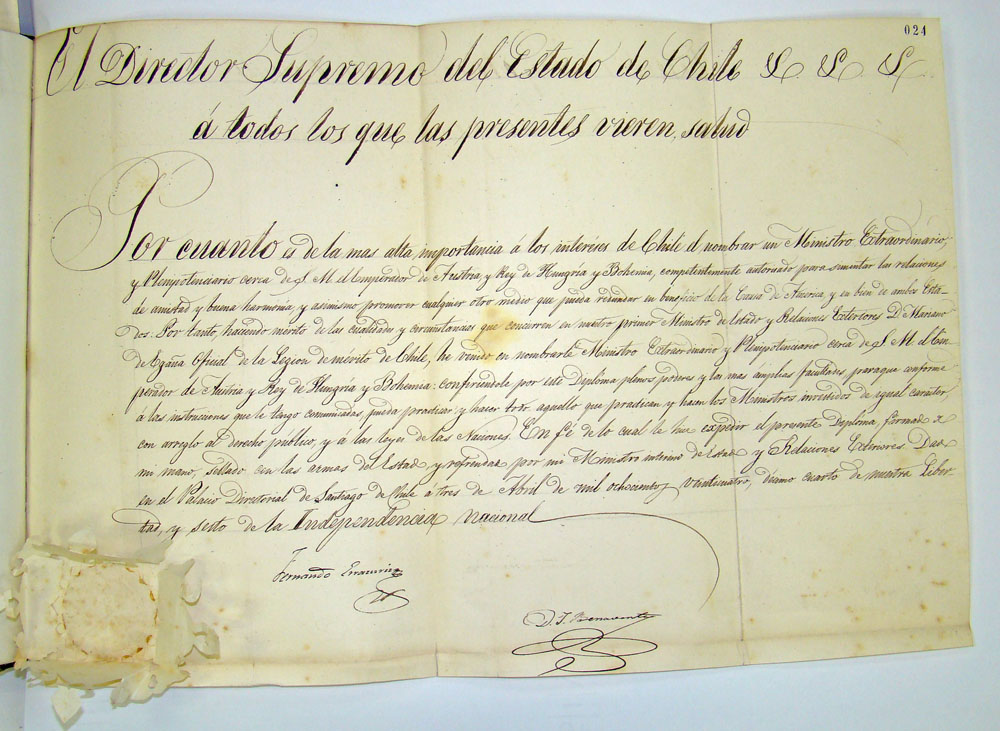 024
El Director Supremo del Estado de Chile &. &. &.
á todos los que las presentes vieren, salud
Por cuanto es de la mas alta importancia á los interéses de Chile el nombrar un Ministro Extraordinário,
y Plenipotenciario cerca de S. M. el Emperador de Austria, y Rey de Hungría y Bohemia, competentemente autorizado para simentar las relaciones
de amistad y buena harmonía, y asimismo promover cualquier otro medio que pueda redundar en beneficio de la Causa de America, y en bien de ambos Esta-
dos. Por tanto, haciendo mérito de las cualidades y circunstancias que concurren en nuestro primer Ministro de Estado y Relaciones Exteriores D. Mariano
de Egaña Oficial de la Legion de mérito de Chile, he venido en nombrarle Ministro Extraordinario y Plenipotenciario cerca de S. M. el Em-
perador de Austria y Rey de Hungría y Bohemia: confiriendole por este Diploma plenos poderes y las mas amplias facultades para que conforme
a las instrucciones que le tengo comunicadas, pueda practicar y hacer todo aquello que practican y hacen los Ministros investidos de igual caracter,
con arreglo al derecho publico, y á las leyes de las Naciones. En fé de lo cual le he expedir el presente Diploma, firmado de
mi mano, sellado con las armas del Estado y refrendado por mi Ministro interino de Estado y Relaciones Exteriores. Dado
en el Palacio Directorial de Santiago de Chile á tres de Abril de mil ochocientos veinticuatro, décimo cuarto de nuestra Liber-
tad, y sesto de la Independencia nacional
Fernando Errazuriz
D. J. Benavente